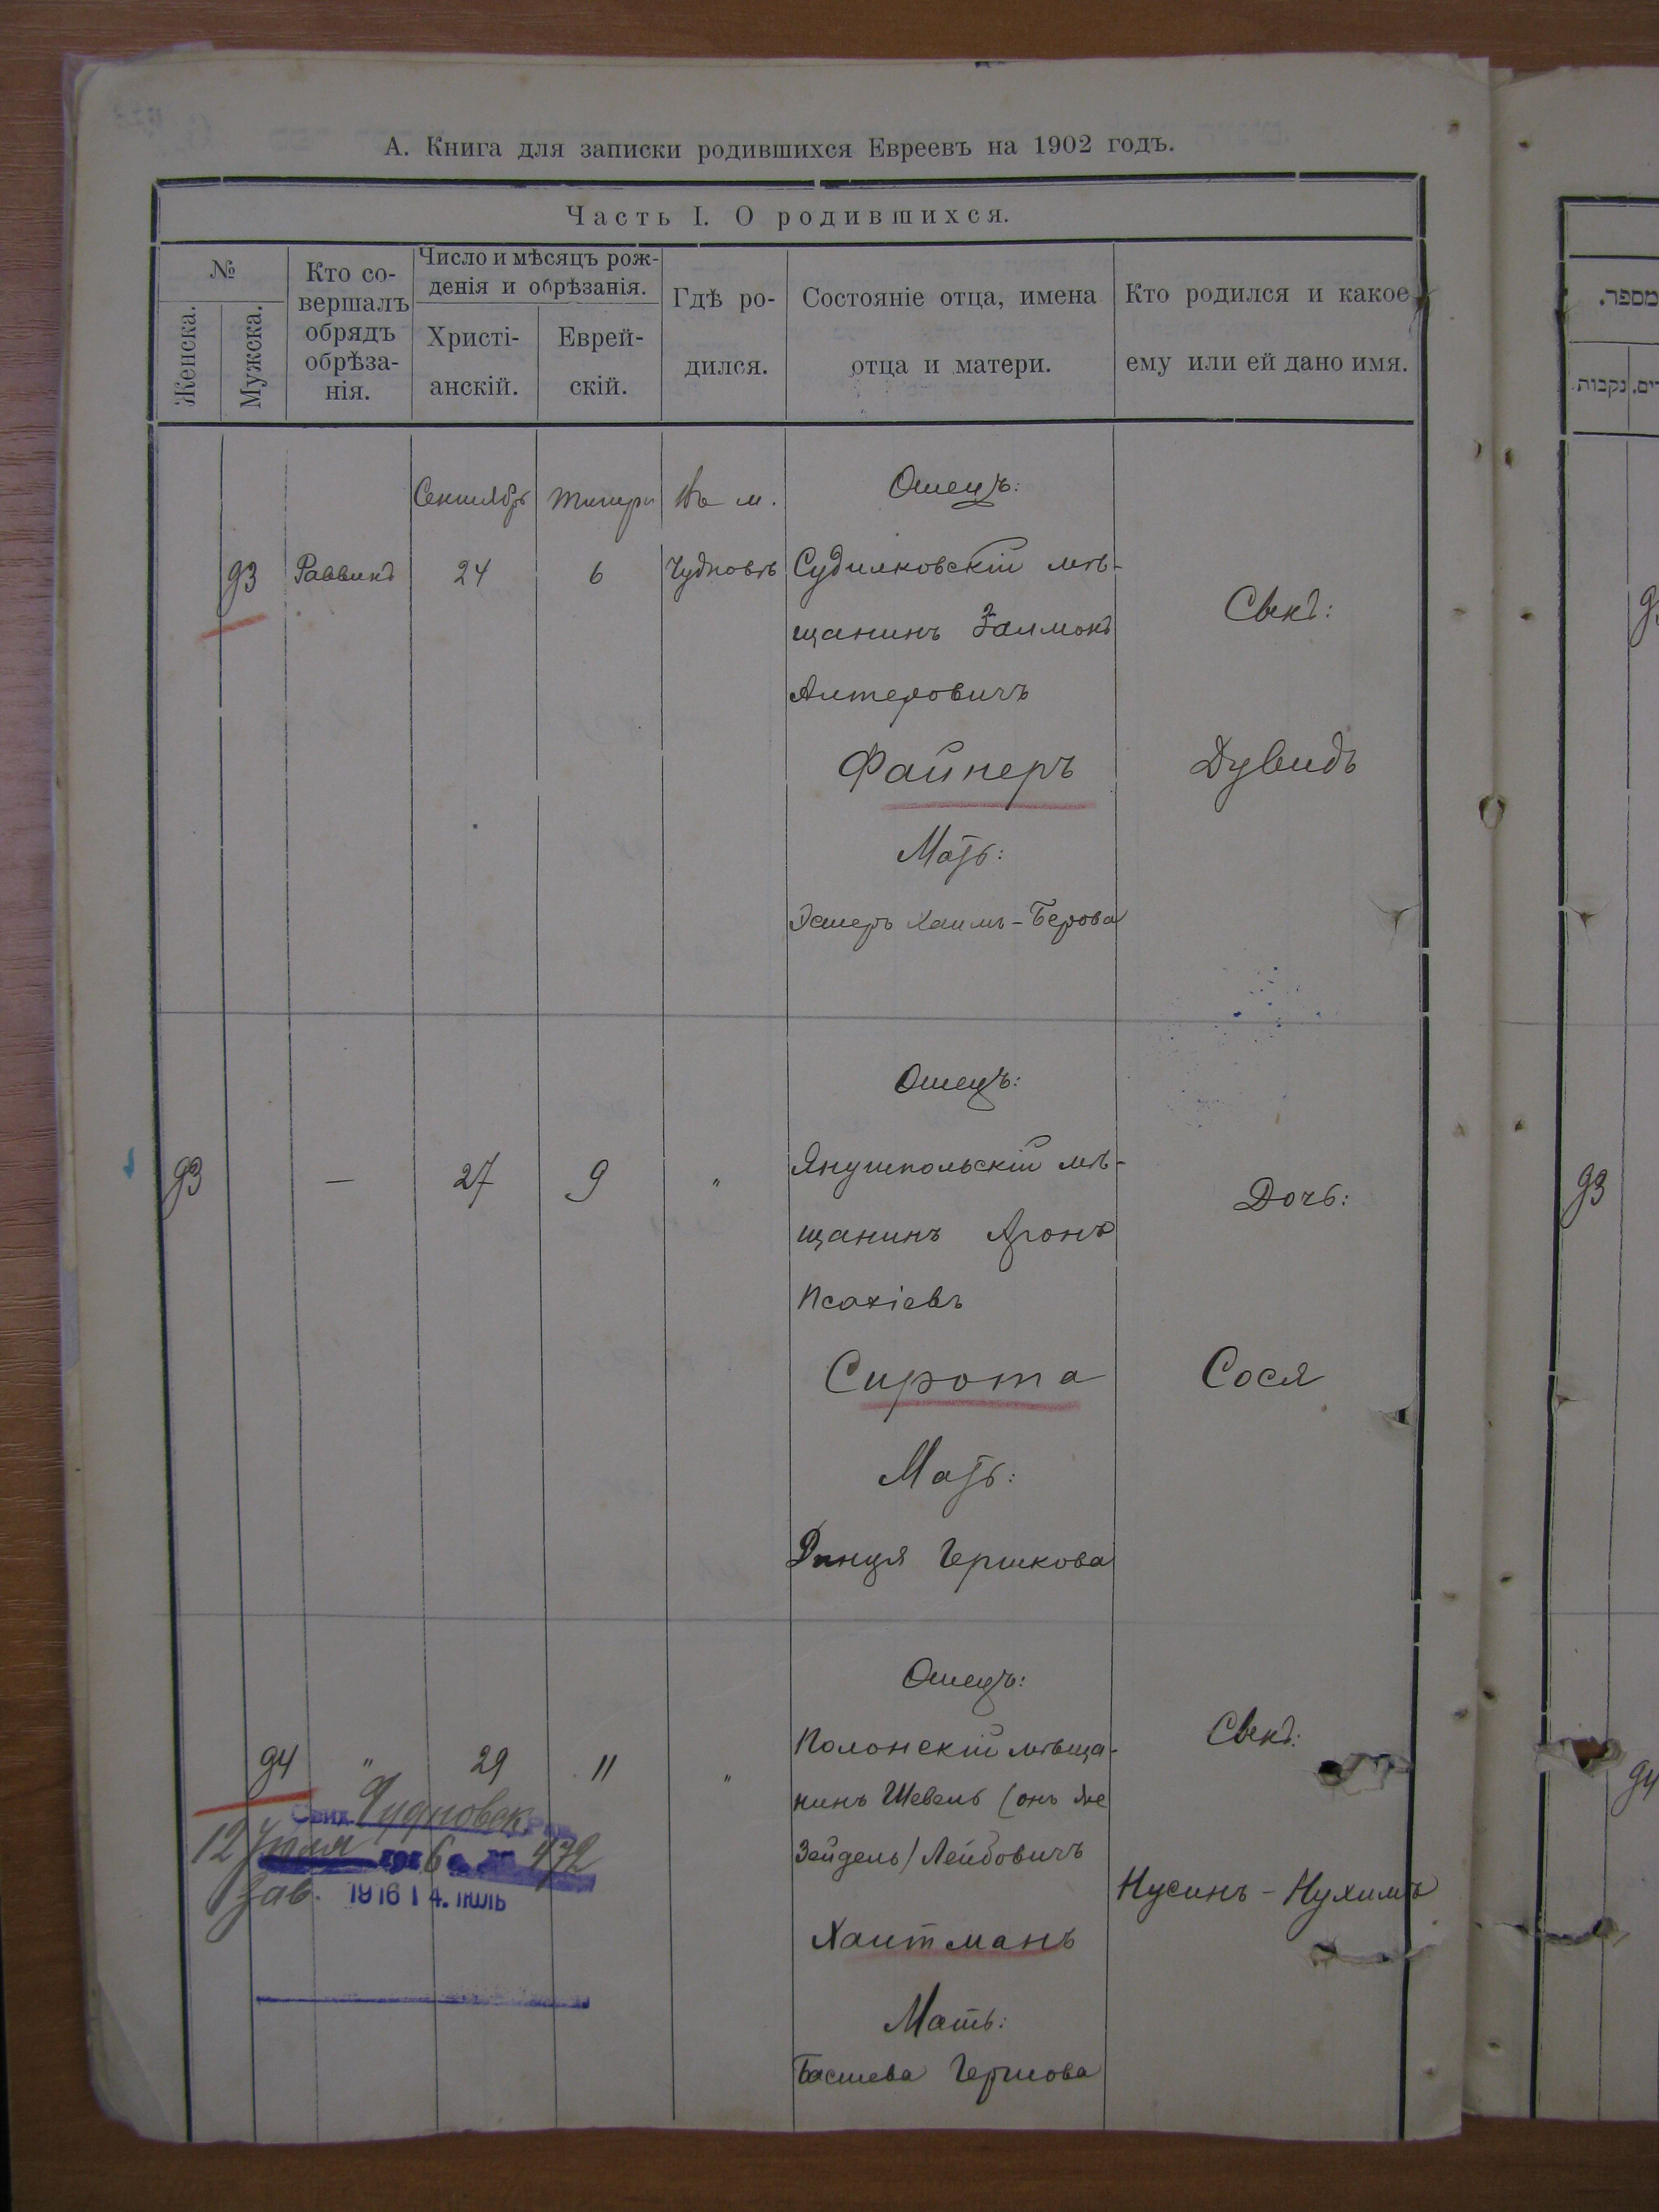 А. Книга для записки родившихся Евреевъ на 1902 годъ.
Часть I. О родившихся.
№
Женска.
Мужска.
Кто со-
вершалъ
обрядъ
обрѣза-
нія.
Число и мѣсяцъ рож-
денія и обрѣзанія.
Христі-
анскій.
Еврей-
скій.
Гдѣ ро-
дился.
Состояніе отца, имена
отца и матери.
Кто родился и какое
ему или ей дано имя.
Сентябрь
Тишри
Въ м.
Отецъ:
93
Раввинъ
24
6
Чудновѣ
Судилковскій мѣ-
щанинъ Залмонъ
Алтеровичъ
Файнеръ
Мать:
Эстеръ Хаимъ-Берова
Сынъ:
Дувидъ
93
—
27
9
"
Отецъ:
Янушпольскій мѣ-
щанинъ Аронъ
Псахіевъ
Сирота
Мать:
Гершкова
Дочь:
Сося
94
"
29
11
"
Отецъ:
Полонскій мѣща-
нинъ Шевель (онъ же
Зейдель) Лейбовичъ
Хаитманъ
Мать:
Басшева Гершова
Сынъ:
Нусинъ-Нухимъ
Свид. Чудновск.
12 Іюля 6 472
1916 14. ІЮЛЬ
מספר.
נקבות.
93
94